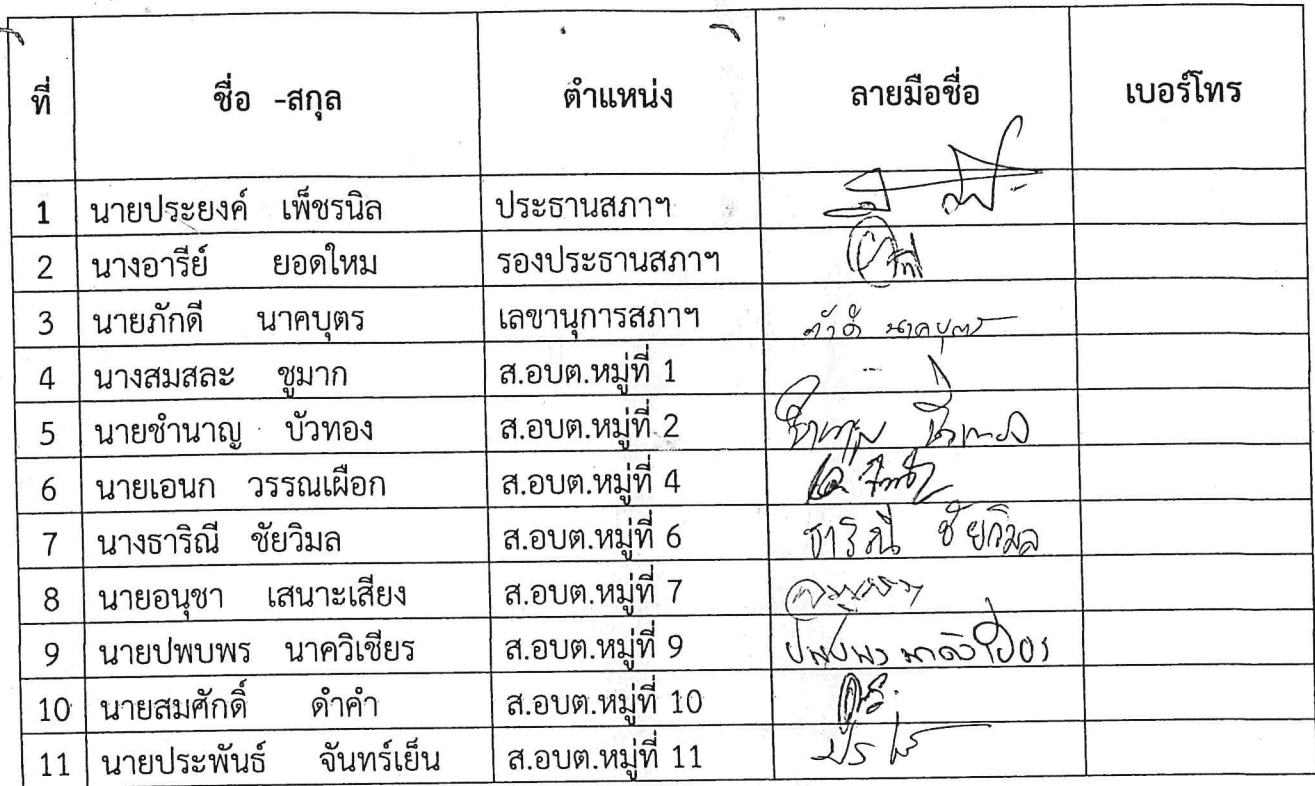 ที่ ชื่อ -สกุล ตำแหน่ง ลายมือชื่อ เบอร์โทร
1 นายประยงค์ เพ็ชรนิล ประธานสภาฯ
2 นางอารีย์ ยอดใหม รองประธานสภาฯ
3 นายภักดี นาคบุตร เลขานุการสภาฯ ภักดี นาคบุตร
4 นางสมสละ ชูมาก ส.อบต.หมู่ที่ 1
5 นายชำนาญ บัวทอง ส.อบต.หมู่ที่ 2
6 นายเอนก วรรณเผือก ส.อบต.หมู่ที่ 4
7 นางธาริณี ชัยวิมล ส.อบต.หมู่ที่ 6 ธาริณี ชัยวิมล
8 นายอนุชา เสนาะเสียง ส.อบต.หมู่ที่ 7
9 นายปพบพร นาควิเชียร ส.อบต.หมู่ที่ 9
10 นายสมศักดิ์ ดำคำ ส.อบต.หมู่ที่ 10
11 นายประพันธ์ จันทร์เย็น ส.อบต.หมู่ที่ 11